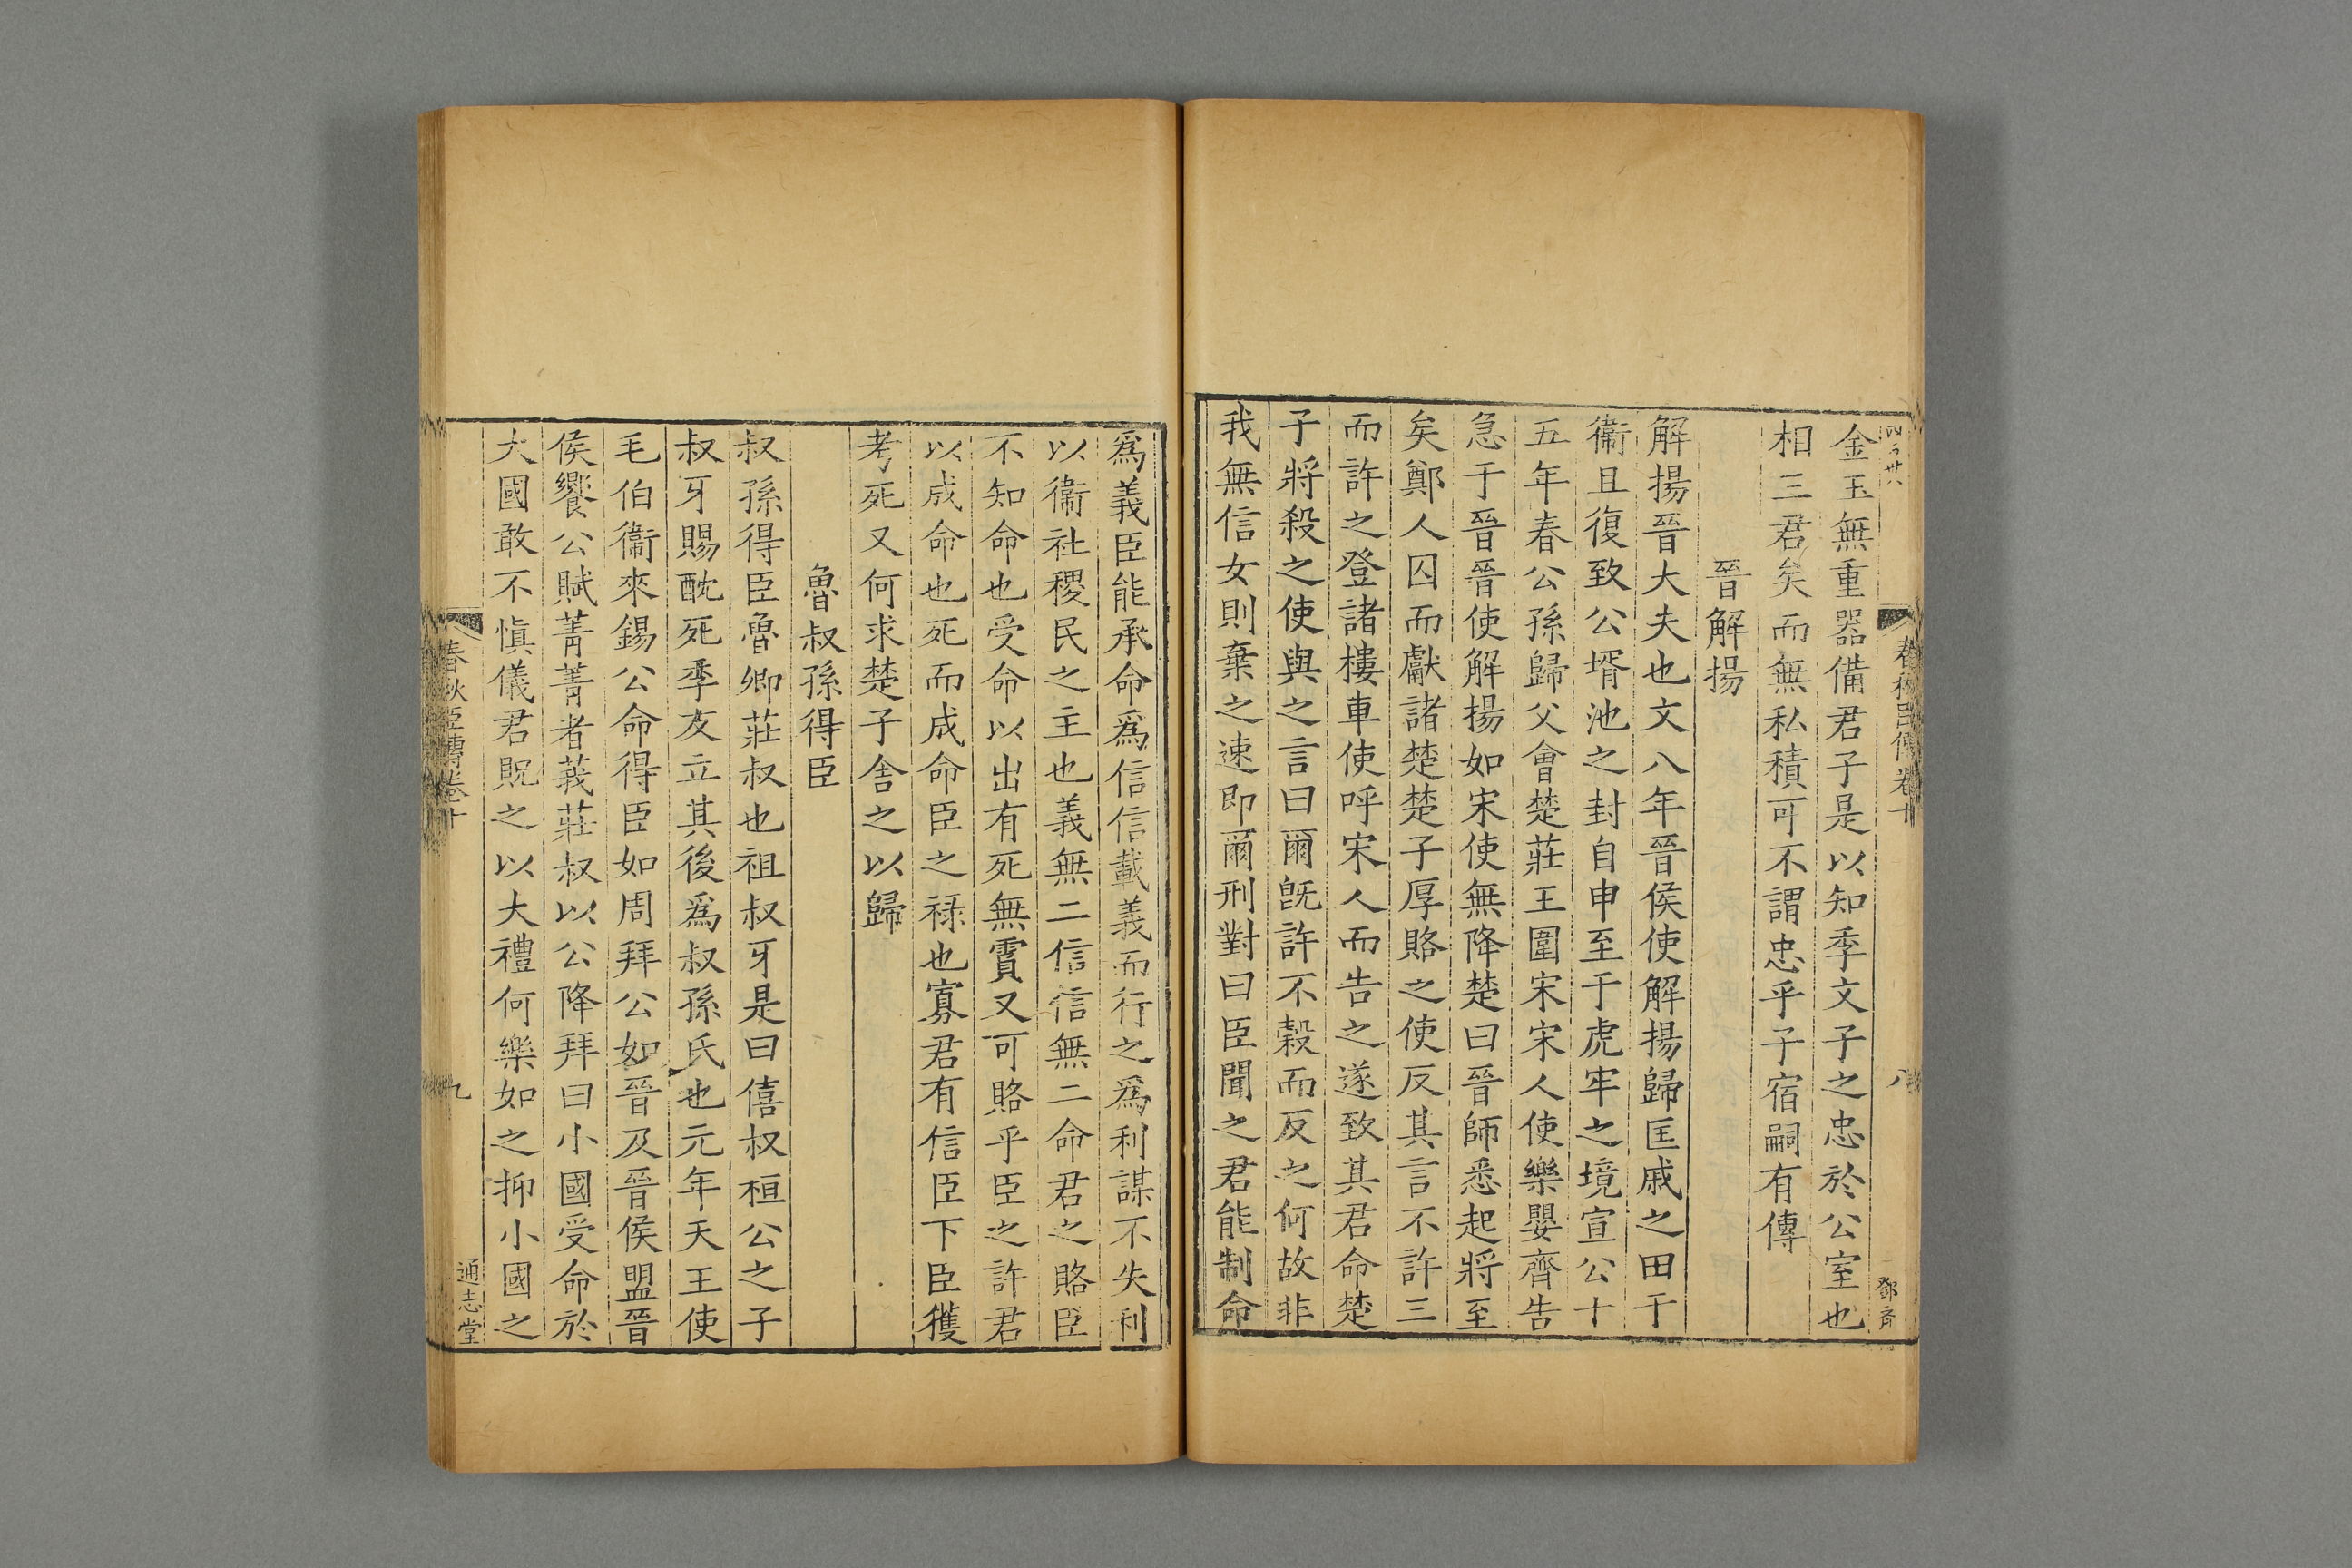 金玉無重器備君子是以知季文子之忠於公室也
相三君矣而無私積可不謂忠乎子宿嗣有傳
晉解揚
解揚晉大夫也文八年晉侯使解揚歸匡戚之田于
衞且復致公壻池之封自申至于虎牢之境宣公十
五年春公孫歸父會楚莊王圍宋宋人使樂嬰齊告
急于晉晉使解揚如宋使無降楚曰晉師悉起將至
矣鄭人囚而獻諸楚楚子厚賂之使反其言不許三
而許之登諸樓車使呼宋人而告之遂致其君命楚
子將殺之使與之言曰爾旣許不穀而反之何故非
我無信女則棄之速即爾刑對曰臣聞之君能制命
爲義臣能承命爲信信載義而行之爲利謀不失利
以衞社稷民之主也義無二信信無二命君之賂臣
不知命也受命以出有死無霣又可賂乎臣之許君
以成命也死而成命臣之禄也寡君有信臣下臣獲
考死又何求楚子舍之以歸
魯叔孫得臣
叔孫得臣魯卿莊叔也祖叔牙是曰僖叔桓公之子
叔牙賜酖死季友立其後爲叔孫氏也元年天王使
毛伯衞來錫公命得臣如周拜公如晉及晉侯盟晉
侯饗公賦菁菁者莪莊叔以公降拜曰小國受命於
大國敢不愼儀君貺之以大禮何樂如之抑小國之
春秋臣傳卷十
九
通志堂